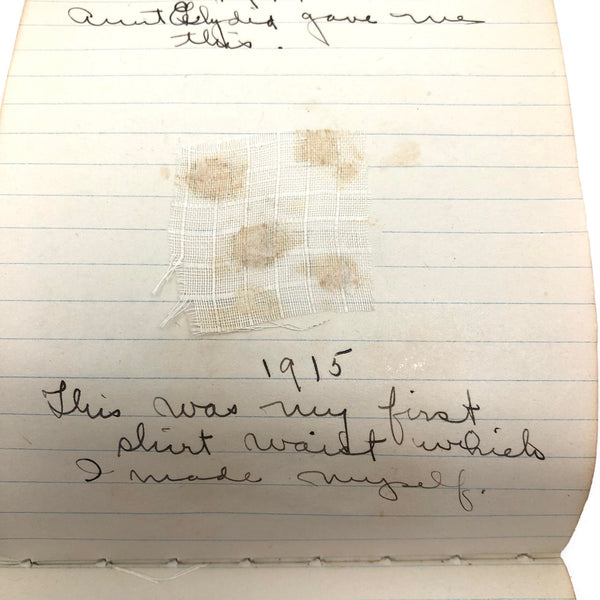 Aunt Lydia gave me
this.
1915
This was my first
shirt waist which
I made myself.